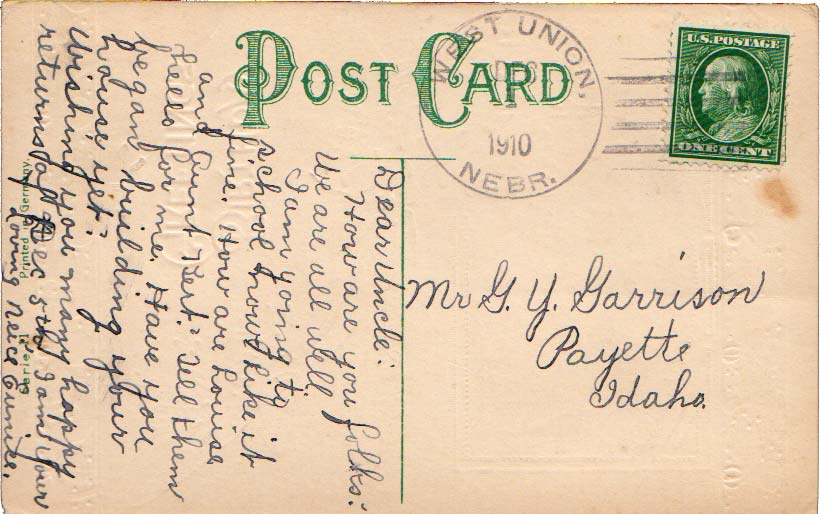 POST CARD
WEST UNION,
DEC 8
1910
NEBR.
U.S. POSTAGE
ONE CENT
Dear Uncle:
How are you folks.
We are all well
I am going to
school now like it
fine. How are Louise
and Aunt Bert? Tell them
hello for me. Have you
began building your
house yet?
Wishing you many happy
returns of Dec 5th I am your
Loving Neice Eunice.
Mr G. Y. Garrison
Payette
Idaho.
Printed in Germany
Serie